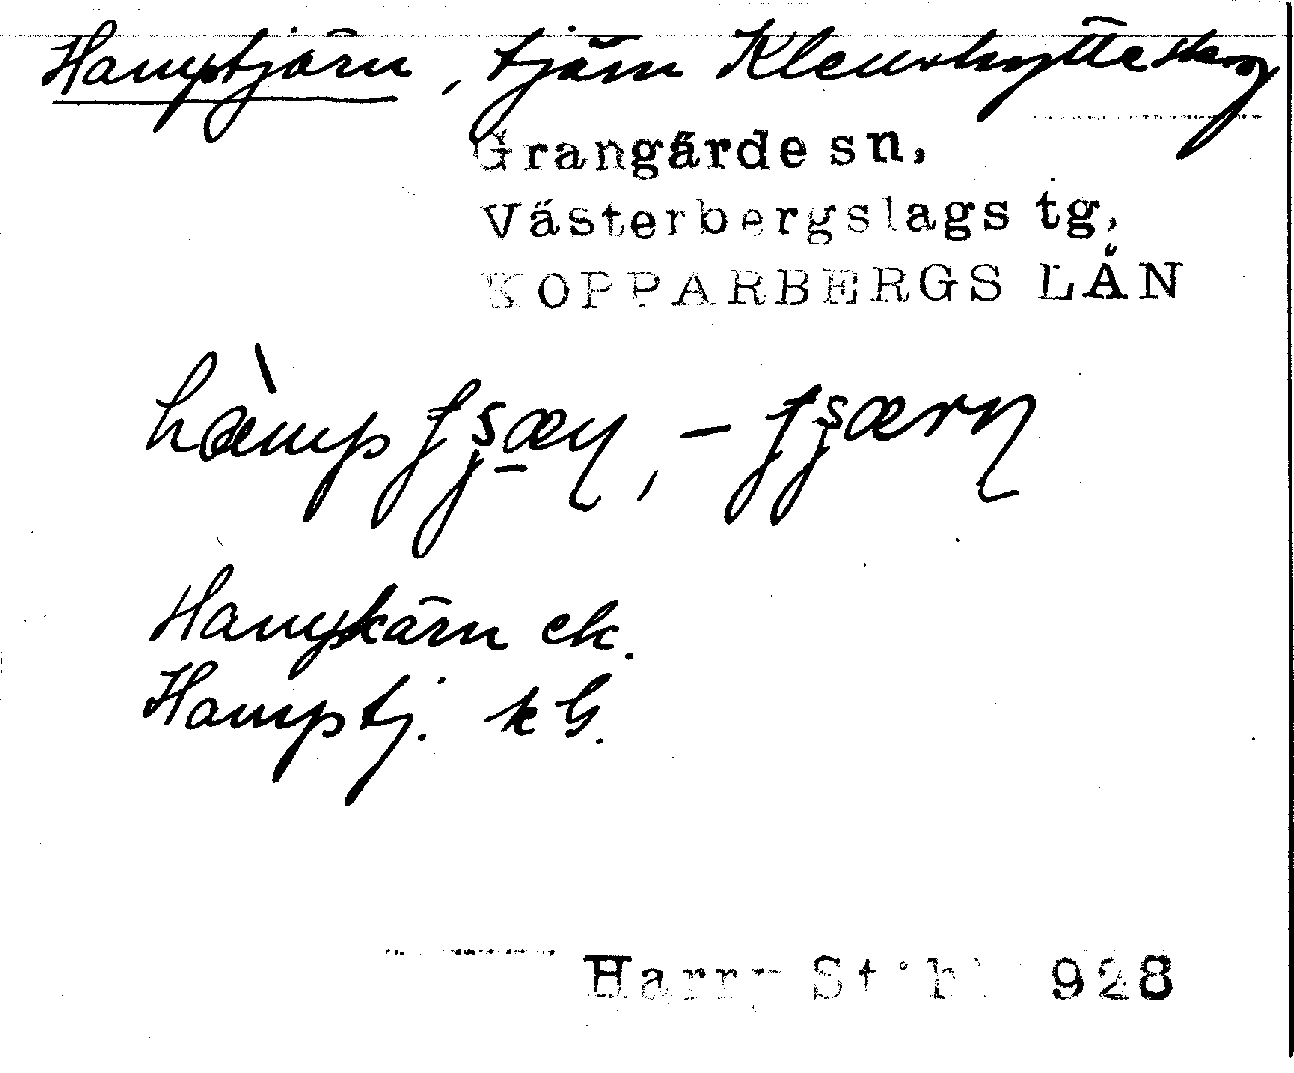 Hamptjärn, tjärn Klenshytte skog
Grangärde sn,
Västerbergslags tg,
KOPPARBERGS LÄN
Hampkärn ek.
Hamptj. kG.
Harry Ståhl 928